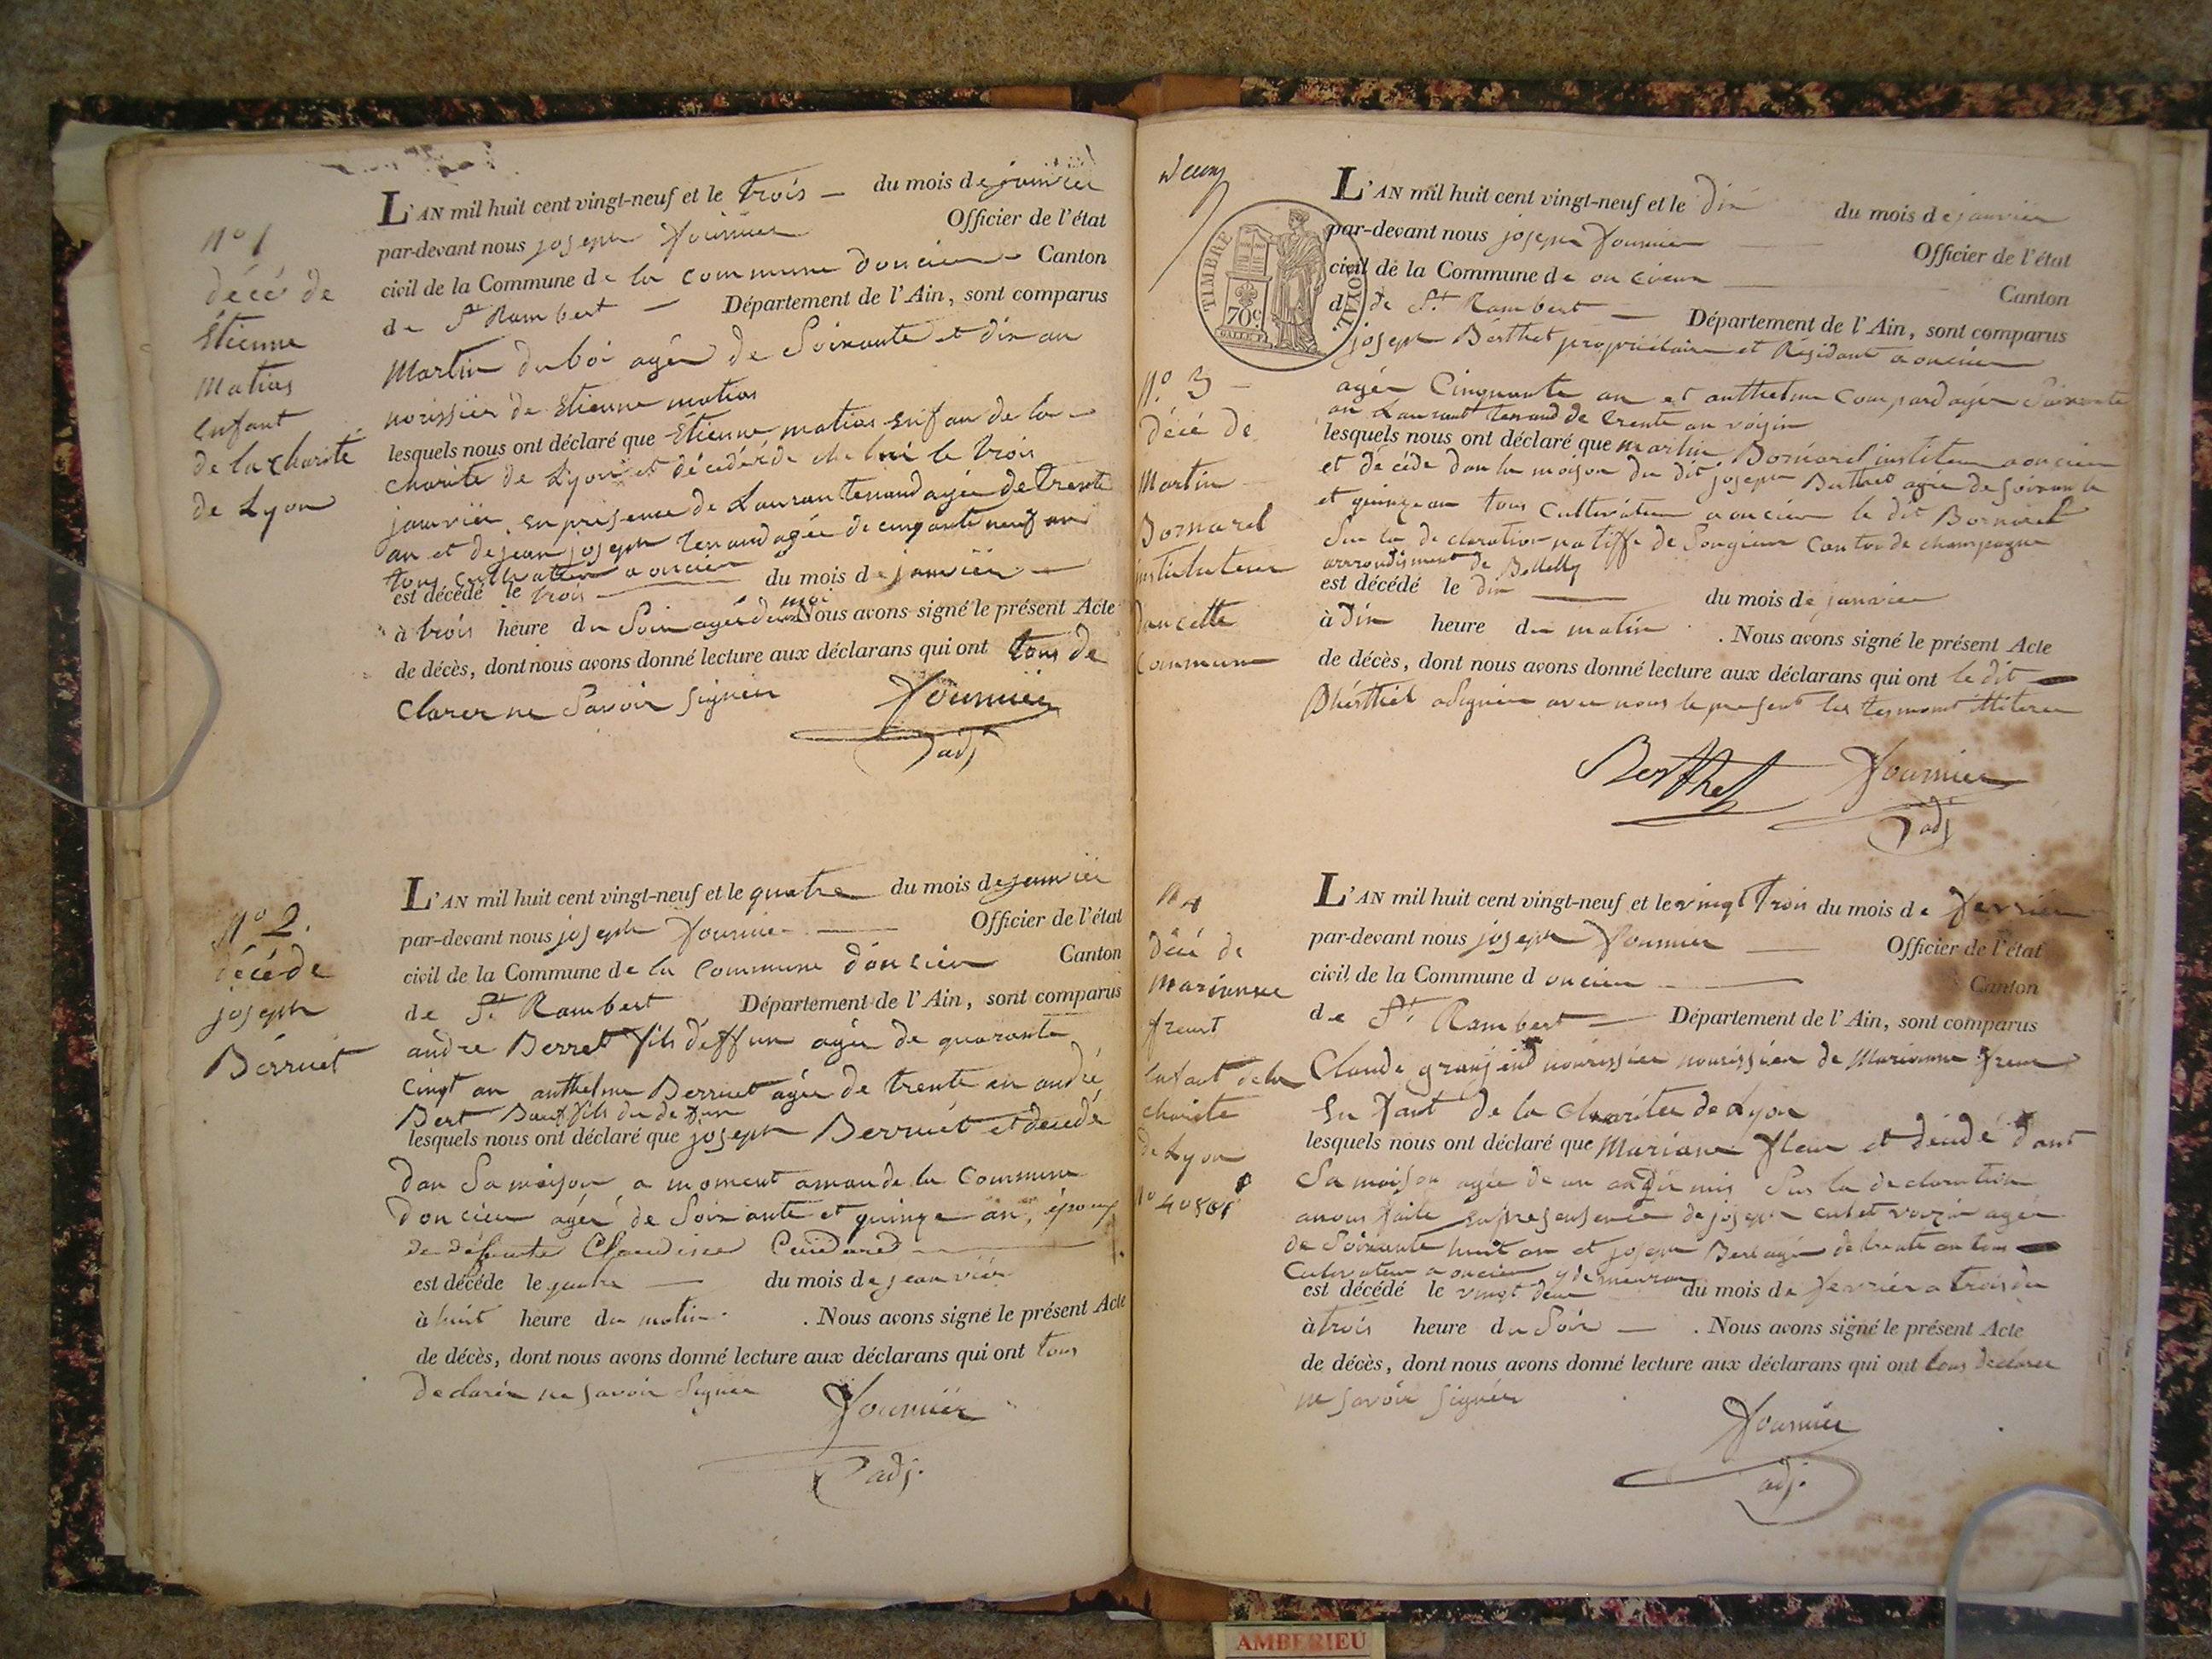 N° 1
décé de
Étienne
Matias
enfant
de la charité
de Lyon
L'AN mil huit cent vingt-neuf et le trois — du mois de janviér
par-devant nous joseph fournier Officier de l'état
civil de la Commune de la commune doncieu — Canton
de St Rambert — Département de l'Ain, sont comparus
Martin du boi agér de Soixante et dix an
norissiér de Étienne matias
lesquels nous ont déclaré que Étienne matias enfan de la
charite de Lyon et décédér de che lui le trois
janvier en presence de Lauran tenand agée de trente
an et de jean joseph tenand agée de cinqante neuf an
tous cultivateur a oncieu
est décédé le trois — du mois de janviér —
à trois heure du Soir agér de moi Nous avons signé le présent Acte
de décès, dont nous avons donné lecture aux déclarans qui ont tous de
clarer ne Savoir Signier
fournier
adj
N° 2.
décéde
joseph
Bérruét
L'AN mil huit cent vingt-neuf et le quatre du mois de janviér
par-devant nous joseph fournier — Officier de l'état
civil de la Commune de la Commune d'oncieu Canton
de St Rambert Département de l'Ain, sont comparus
andre Berret fils déffun agér de quarante
cinqt an anthelme Berruet agér de trente an andré
Bert fils du défun
lesquels nous ont déclaré que joseph Berruét et decedé
dan Sa maison a moment amande la Commune
doncieu agér de Soixante et quinze an, époux
de défunte Claudine —
est décédé le quatre — du mois de jeanviér
à huit heure du matin . Nous avons signé le présent Acte
de décès, dont nous avons donné lecture aux déclarans qui ont tous
declarér ne savoir Signér
fourniér
adj.
TIMBRE ROYAL.
70 c
N° 3 —
décé de
Martin
Bornarel
instituteur
dan cette
commune
L'AN mil huit cent vingt-neuf et le dix du mois de janvier
par-devant nous joseph fournier — Officier de l'état
civil de la Commune de oncieu — Canton
d de St Rambert — Département de l'Ain, sont comparus
joseph Bérthet propriétaire et Résidant a oncieu
agér Cinquante an et anthelme Compard agér Soixante
an Laurant tenand de trente an voisin
lesquels nous ont déclaré que martin Bornarel instituteur a oncieu
et décéde dan la maison du dit joseph Berthet agée de soixante
et quinze an tous Cultivateur a oncieu le dit Bornarel
Sur la declaration natiffe de Songieu Canton de champagne
arrondisment de Bellelly
est décédé le dix — du mois de janvier
à Dix heure du matin . Nous avons signé le présent Acte
de décès, dont nous avons donné lecture aux déclarans qui ont le dit —
Bhérthét a Signér avec nous le present les temoint illiterer
Berthet fournier
adj
N 4
décé de
Marianne
freurt
enfant de la
charite
de Lyon
N°
L'AN mil huit cent vingt-neuf et le vingt trois du mois de fevrier
par-devant nous joseph fournier — Officier de l'état
civil de la Commune d oncieu — Canton
de St Rambert — Département de l'Ain, sont comparus
Claude nourissiér nourissiér de Marianne freur
en fant de la Charitée de Lyon
lesquels nous ont déclaré que Mariane fleur et décédé dant
Sa maison agée de un an Sur la declaration
anous faite en presensence de joseph voizin agér
de Soixante huit an et joseph Bert agér de trente an tous —
Cultivateur a oncieu y demeuran
est décédé le vingt deux du mois de fevriér a trois du
à trois heure du Soir — . Nous avons signé le présent Acte
de décès, dont nous avons donné lecture aux déclarans qui ont tous declarer
ne savoir signér
fournier
adj.
AMBERIEU